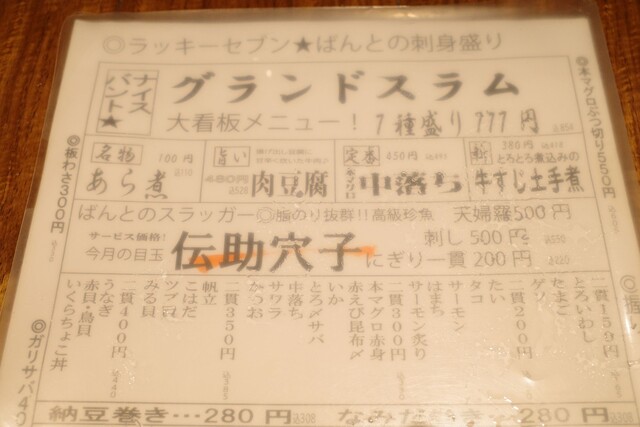 ◎ラッキーセブン★ばんとの刺身盛り
ナイス
バント★
グランドスラム
大看板メニュー！7種盛り777円
込854
◎本マグロぶつ切り550円
◎板わさ300円
名物
100円
込110
あら煮
旨い
480円
込528
肉豆腐
定番
450円
中落ち
380円
込418
とろとろ煮込みの
牛すじ土手煮
ばんとのスラッガー◎脂のり抜群!!高級珍魚
天婦羅500円
サービス価格!
今月の目玉
伝助穴子
刺し500円
にぎり一貫200円
込220
二貫159円
とろいわし
たまご
ゲソ
二貫200円
たい
タコ
サーモン
はまち
サーモン炙り
二貫300円
本マグロ赤身
赤えび昆布〆
いか
とろ〆サバ
中落ち
サワラ
かつお
二貫350円
込385
帆立
こはだ
ツブ貝
みる貝
二貫400円
込440
うなぎ
赤貝・鳥貝
いくらちょこ丼
◎ガリサバ40
納豆巻き…280円
込308
なみだ巻き…280円
込308